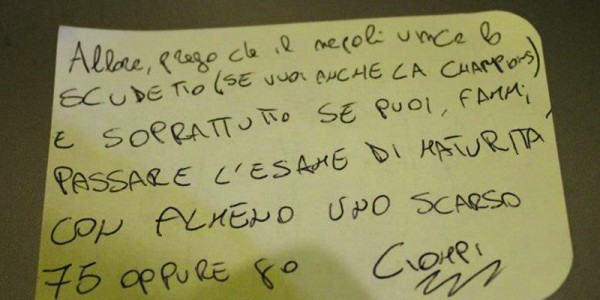 Allora, prego che il napoli vince lo
SCUDETTO (SE VUOI ANCHE LA CHAMPIONS)
E SOPRATTUTTO SE PUOI, FAMMI
PASSARE L'ESAME DI MATURITA'
CON ALMENO UNO SCARSO
75 OPPURE 80 CIOMPI